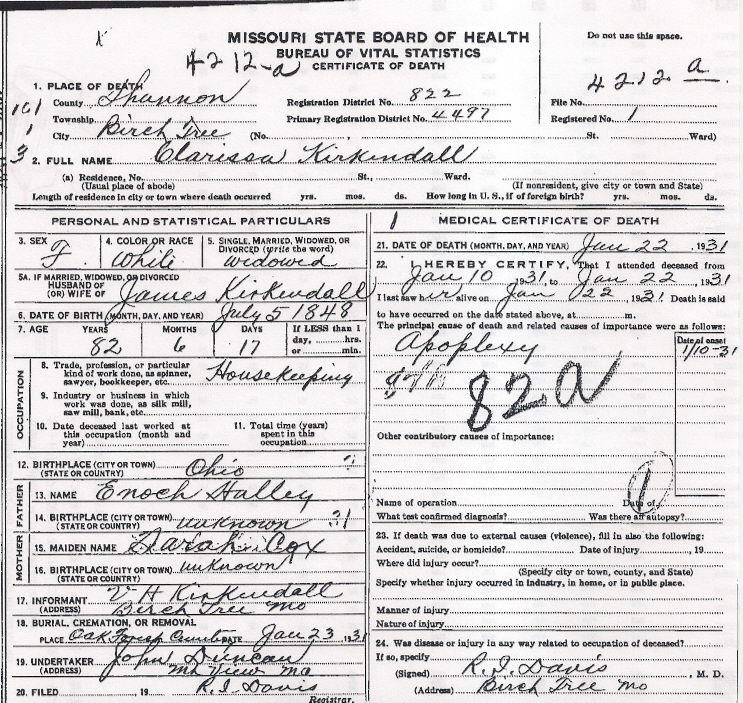 MISSOURI STATE BOARD OF HEALTH
BUREAU OF VITAL STATISTICS
CERTIFICATE OF DEATH
Do not use this space.
4212-a
4212 a
1. PLACE OF DEATH
County Shannon Registration District No. 822 File No.
Township Primary Registration District No. 4497 Registered No. 1
City Birch Tree (No. , St. Ward)
101
1
3
2. FULL NAME Clarissa Kirkendall
(a) Residence, No. St., Ward.
(Usual place of abode) (If nonresident, give city or town and State)
Length of residence in city or town where death occurred yrs. mos. ds. How long in U. S., if of foreign birth? yrs. mos. ds.
PERSONAL AND STATISTICAL PARTICULARS
3. SEX F. 4. COLOR OR RACE White 5. SINGLE, MARRIED, WIDOWED, OR DIVORCED (write the word) widowed
5A. IF MARRIED, WIDOWED, OR DIVORCED
HUSBAND OF
(OR) WIFE OF James Kirkendall
6. DATE OF BIRTH (MONTH, DAY, AND YEAR) July 5 1848
7. AGE YEARS MONTHS DAYS If LESS than 1
82 6 17 day, hrs.
or min.
OCCUPATION
8. Trade, profession, or particular
kind of work done, as spinner,
sawyer, bookkeeper, etc. Housekeeping
9. Industry or business in which
work was done, as silk mill,
saw mill, bank, etc.
10. Date deceased last worked at
this occupation (month and
year)
11. Total time (years)
spent in this
occupation
12. BIRTHPLACE (CITY OR TOWN)
(STATE OR COUNTRY) Ohio
FATHER
13. NAME Enoch Halley
14. BIRTHPLACE (CITY OR TOWN) unknown
(STATE OR COUNTRY)
MOTHER
15. MAIDEN NAME Sarah Cox
16. BIRTHPLACE (CITY OR TOWN) unknown
(STATE OR COUNTRY)
17. INFORMANT V H Kirkendall
(ADDRESS) Birch Tree Mo
18. BURIAL, CREMATION, OR REMOVAL
PLACE Oak DATE Jan 23 1931
19. UNDERTAKER John Duncan
(ADDRESS) Mt View Mo
20. FILED , 19 R. I. Davis
Registrar.
1 MEDICAL CERTIFICATE OF DEATH
21. DATE OF DEATH (MONTH, DAY, AND YEAR) Jan 22 , 1931
22. I HEREBY CERTIFY, That I attended deceased from
Jan 10 , 1931, to Jan 22 , 1931
I last saw her alive on Jan 22 , 1931 Death is said
to have occurred on the date stated above, at m.
The principal cause of death and related causes of importance were as follows:
Date of onset
Apoplexy 1/10-31
82a
Other contributory causes of importance:
1
Name of operation Date of
What test confirmed diagnosis? Was there an autopsy?
23. If death was due to external causes (violence), fill in also the following:
Accident, suicide, or homicide? Date of injury , 19
Where did injury occur?
(Specify city or town, county, and State)
Specify whether injury occurred in industry, in home, or in public place.
Manner of injury
Nature of injury
24. Was disease or injury in any way related to occupation of deceased?
If so, specify
(Signed) R. I. Davis , M. D.
(Address) Birch Tree Mo